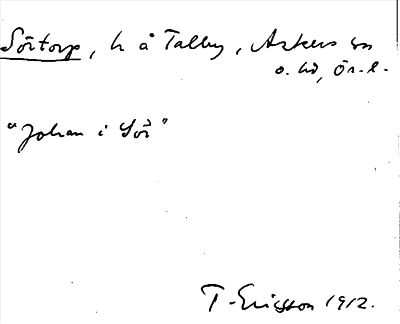 Sörtorp, h å Tälby, Askers sn
o. hd, Ör. l.
"Johan i Sör"
T. Ericsson 1912.